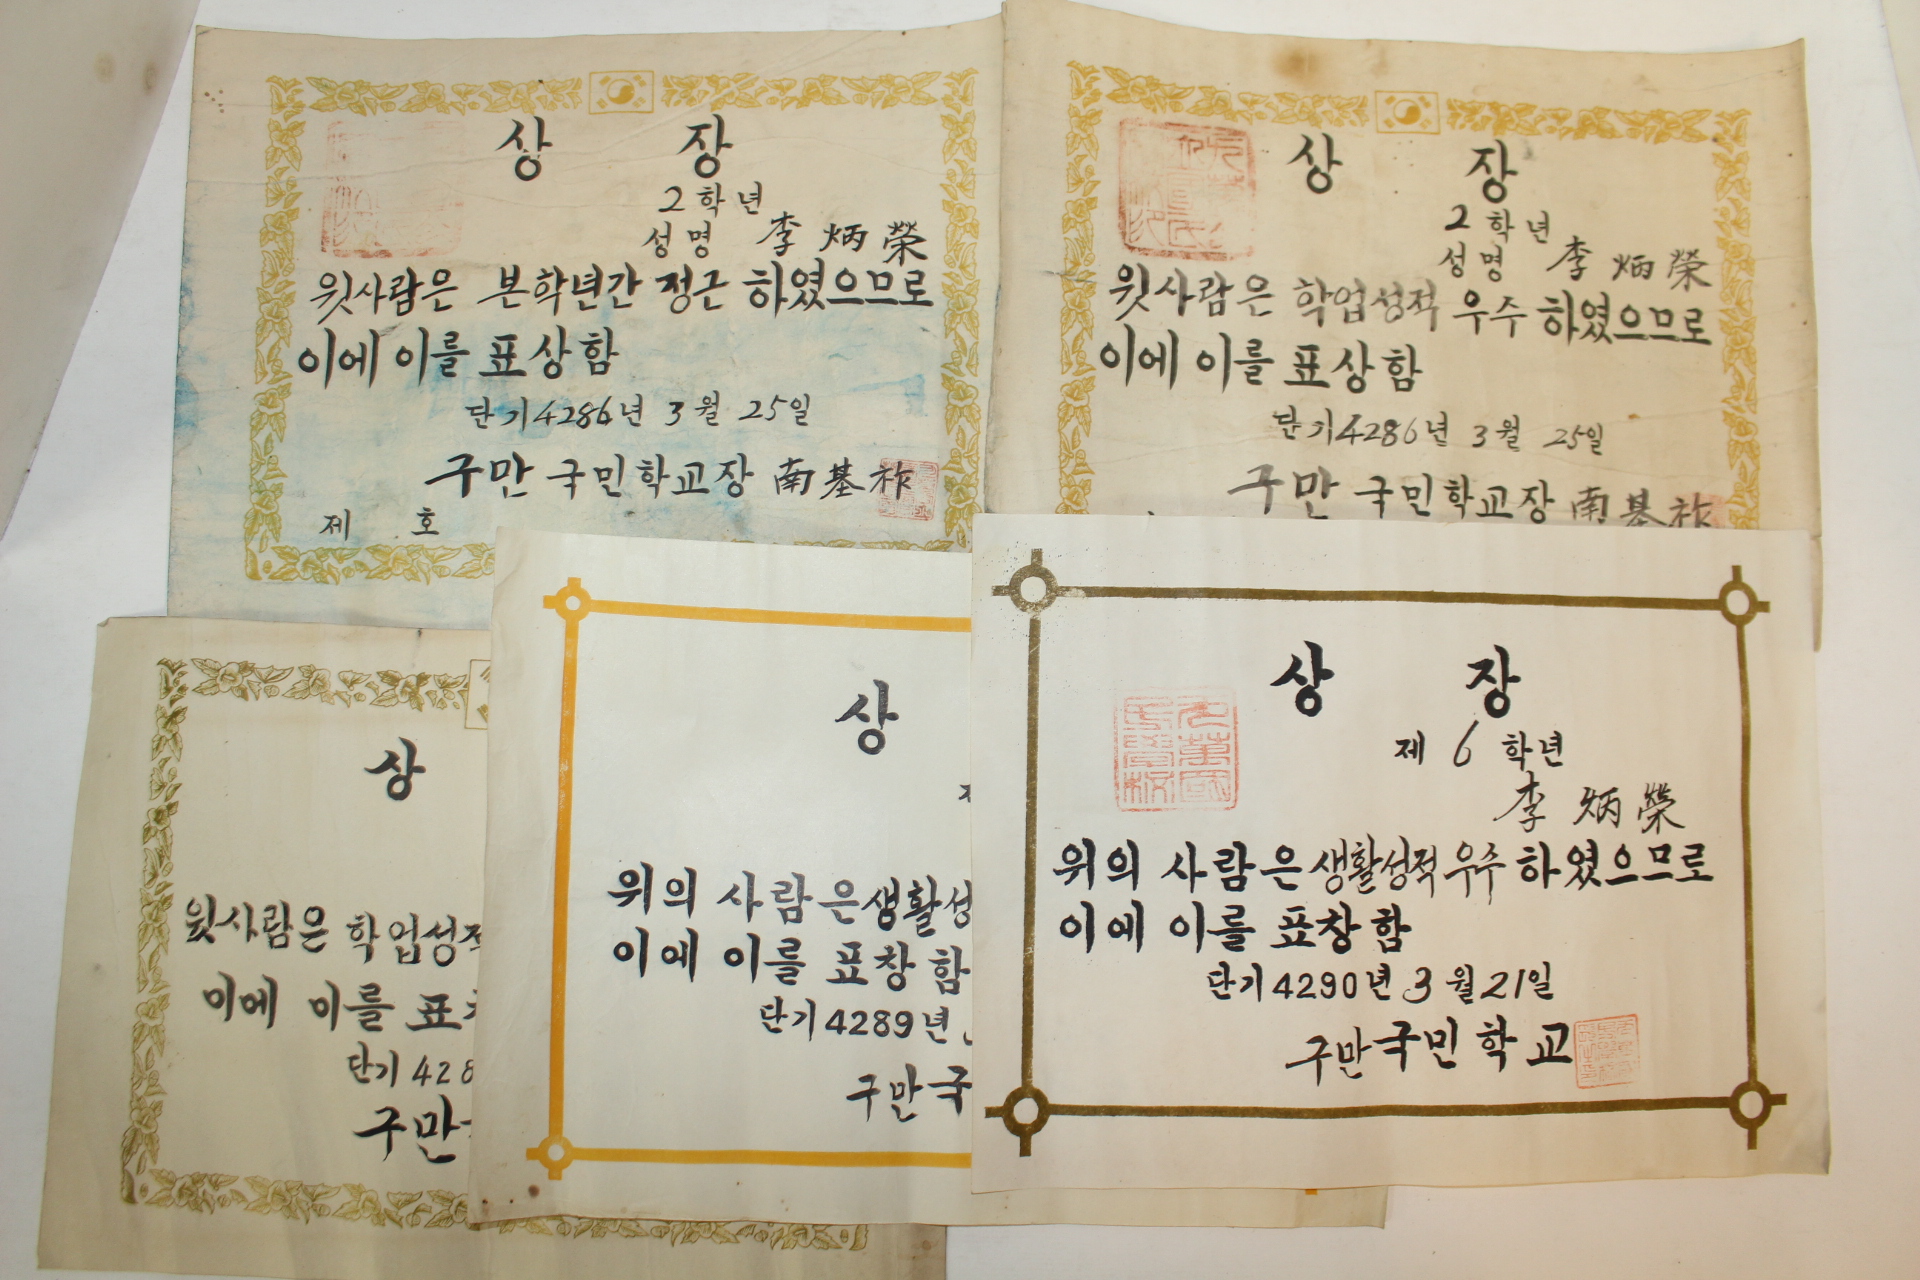 상 장
2학년
성명 李炳榮
윗사람은 본학년간 정근 하였으므로
이에 이를 표상함
단기4286년 3월 25일
구만 국민학교장 南基祚
제 호
상 장
2학년
성명 李炳榮
윗사람은 학업성적 우수 하였으므로
이에 이를 표상함
단기4286년 3월 25일
구만 국민학교장 南基祚
상
윗사람은 학업성적
이에 이를 표
단기 428
구만
상
위의 사람은 생활성
이에 이를 표창함
단기4289년
구만국
상 장
제 6 학년
李炳榮
위의 사람은 생활성적 우수 하였으므로
이에 이를 표창함
단기4290년 3월21일
구만국민학교